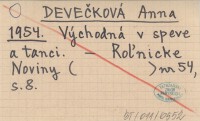 DEVEČKOVÁ Anna
1954. Východná v speve
a tanci. – Roľnicke
Noviny ( ) nr 54,
s. 8.